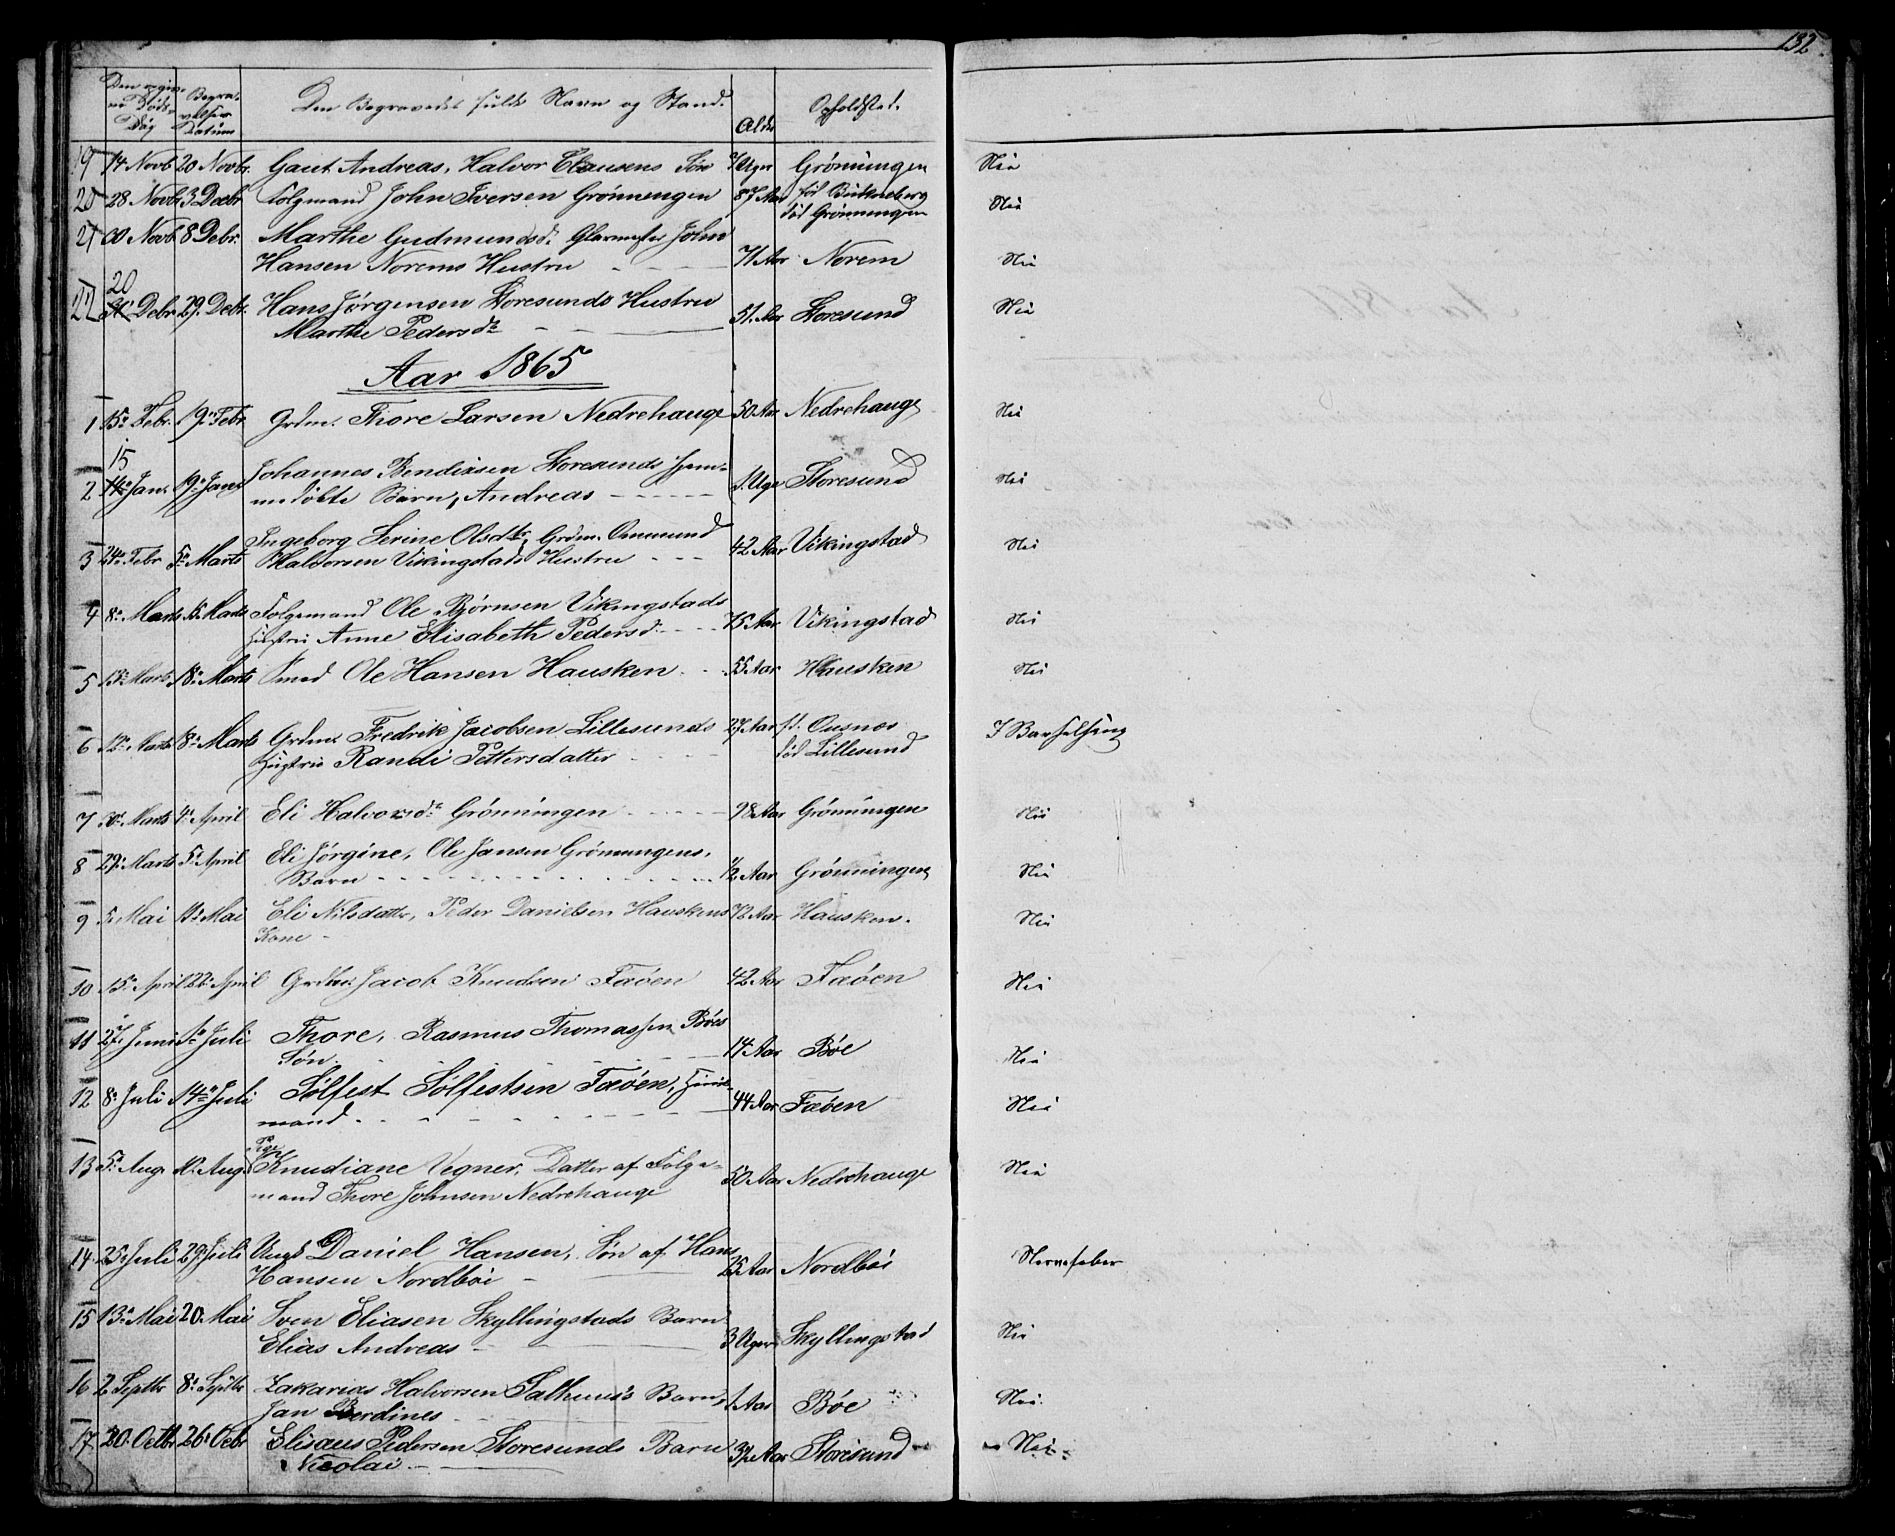 132.
Den
Døds-
Dag
Begra-
velses
Datum
Den Begravedes fulde Navn og Stand.
Alder
Opholdsted.
19 14 Novb. 20 Novbr. Gaut Andreas, Halvor Clausens Søn Uger Grønningen Nei
20 28 Novb. 3 Decbr Folgemand John Iversen Grønningen 87 Aar fød
død Grønningen Nei
21 30 Novb. 8 Debr. Marthe Gudmundsd. Glarmester John
Hansen Norems Hustru 71 Aar Norem Nei
20
22 Debr. 29. Debr. Hans Jørgensen Storesunds Hustru
Marthe Pedersdr. 51. Aar Storesund Nei
Aar 1865
1 15. Febr. 19. Febr Grdm. Thore Larsen Nedrehauge 50 Aar Nedrehauge Nei
15
2 Jan. 19. Jan. Johannes Bendixsen Storesunds hjem-
medøbte Barn, Andreas Uger Storesund Nei
3 24. Febr 5. Marts Ingeborg Serine Olsdtr, Grdm. Ommund
Halvorsen Vikingstads Hustru 42 Aar Vikingstad Nei
4 8. Marts 15. Marts Folgemand Ole Bjørnsen Vikingstads
Hustru Anne Elisabeth Pedersd. 75 Aar Vikingstad Nei
5 13. Marts 18. Marts Smed Ole Hansen Hausken 55 Aar Hausken Nei
6 12. Marts 18. Marts Grdm. Fredrik Jacobsen Lillesunds
Hustru Randi Pettersdatter 27 Aar fd. Ousnes
død Lillesund I Barselseng
7 30. Marts 4. April Eli Halvorsd. Grønningen 98 Aar Grønningen Nei
8 29. Marts 5. April Eli Jørgine, Ole Jansen Grønningens,
Barn 1/2 Aar Grønningen Nei
9 5. Mai 11. Mai Eli Nilsdatter, Peder Danielsen Hauskens
Kone 73 Aar Hausken. Nei
10 15. April 22. April Grdbr. Jacob Knudsen Faøen 42 Aar Faøen Nei
11 27. Juni 1. Juli Thore, Rasmus Thomassen Bøes
Søn. 14 Aar Bøe Nei
12 8. Juli 14. Juli Sølfest Sølfestsen Faøen, Huus-
mand. 44 Aar Faøen Nei
Pige
13 5. Aug. 10. Aug. Knudiane Vegner, Datter af Folge-
mand Thore Johnsen Nedrehauge 50 Aar Nedrehauge Nei
14 25. Juli 29. Juli Ungk. Daniel Hansen, Søn af Hans
Hansen Nordbøi 25 Aar Nordbøi Nervefeber
15 13. Mai 20. Mai Sven Eliasen Skyllingstads Barn
Elias Andreas 3 Uger Skyllingstad Nei
16 2 Septbr 8. Septbr Zakarias Halvorsen Salhuus's Barn,
Jan Berdines 1 Aar Bøe Nei.
17. 20. Octbr 26. Ocbr Elisæus Pedersen Storesunds Barn
Nicolai 3/4 Aar Storesund Nei